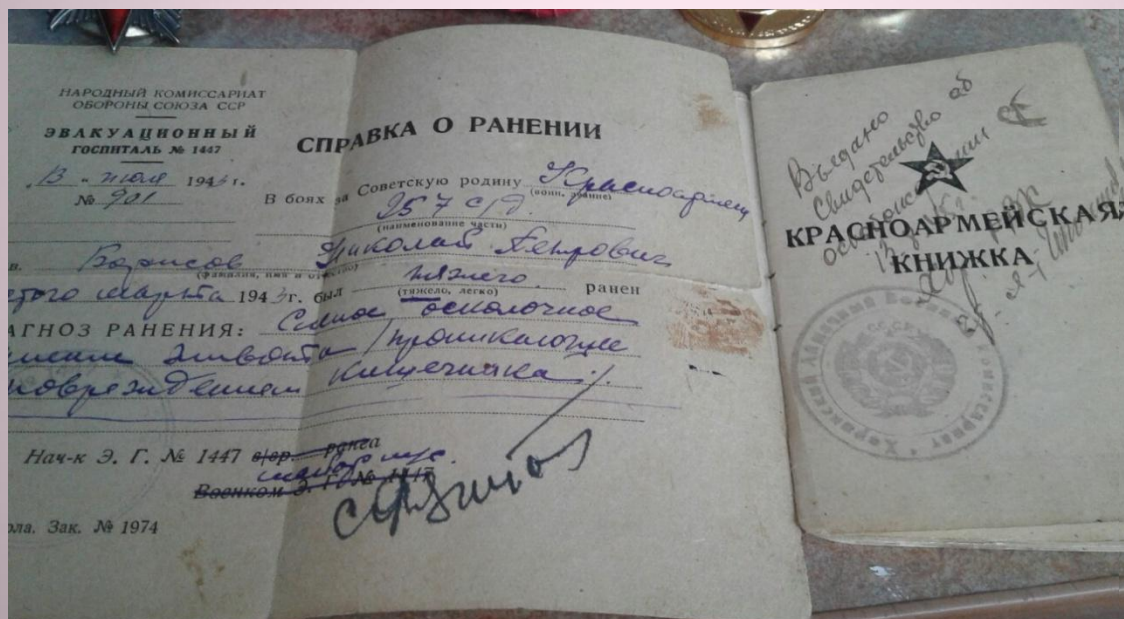 НАРОДНЫЙ КОМИССАРИАТ
ОБОРОНЫ СОЮЗА ССР
ЭВАКУАЦИОННЫЙ
ГОСПИТАЛЬ № 1447
"13" июля 1943 г.
№ 901
СПРАВКА О РАНЕНИИ
В боях за Советскую родину Красноармеец
(воин. звание)
257 с/д
(наименование части)
Борисов Николай Петрович
(фамилия, имя и отчество)
марта 1943 г. был тяжело ранен
(тяжело, легко)
АГНОЗ РАНЕНИЯ: Слепое осколочное
живота /проникающее
повреждением кишечника/.
Нач-к Э. Г. № 1447
Военком Э. Г. № 1447
ола. Зак. № 1974
Выдано
Свидетельство об
КРАСНОАРМЕЙСКАЯ
КНИЖКА
СССР